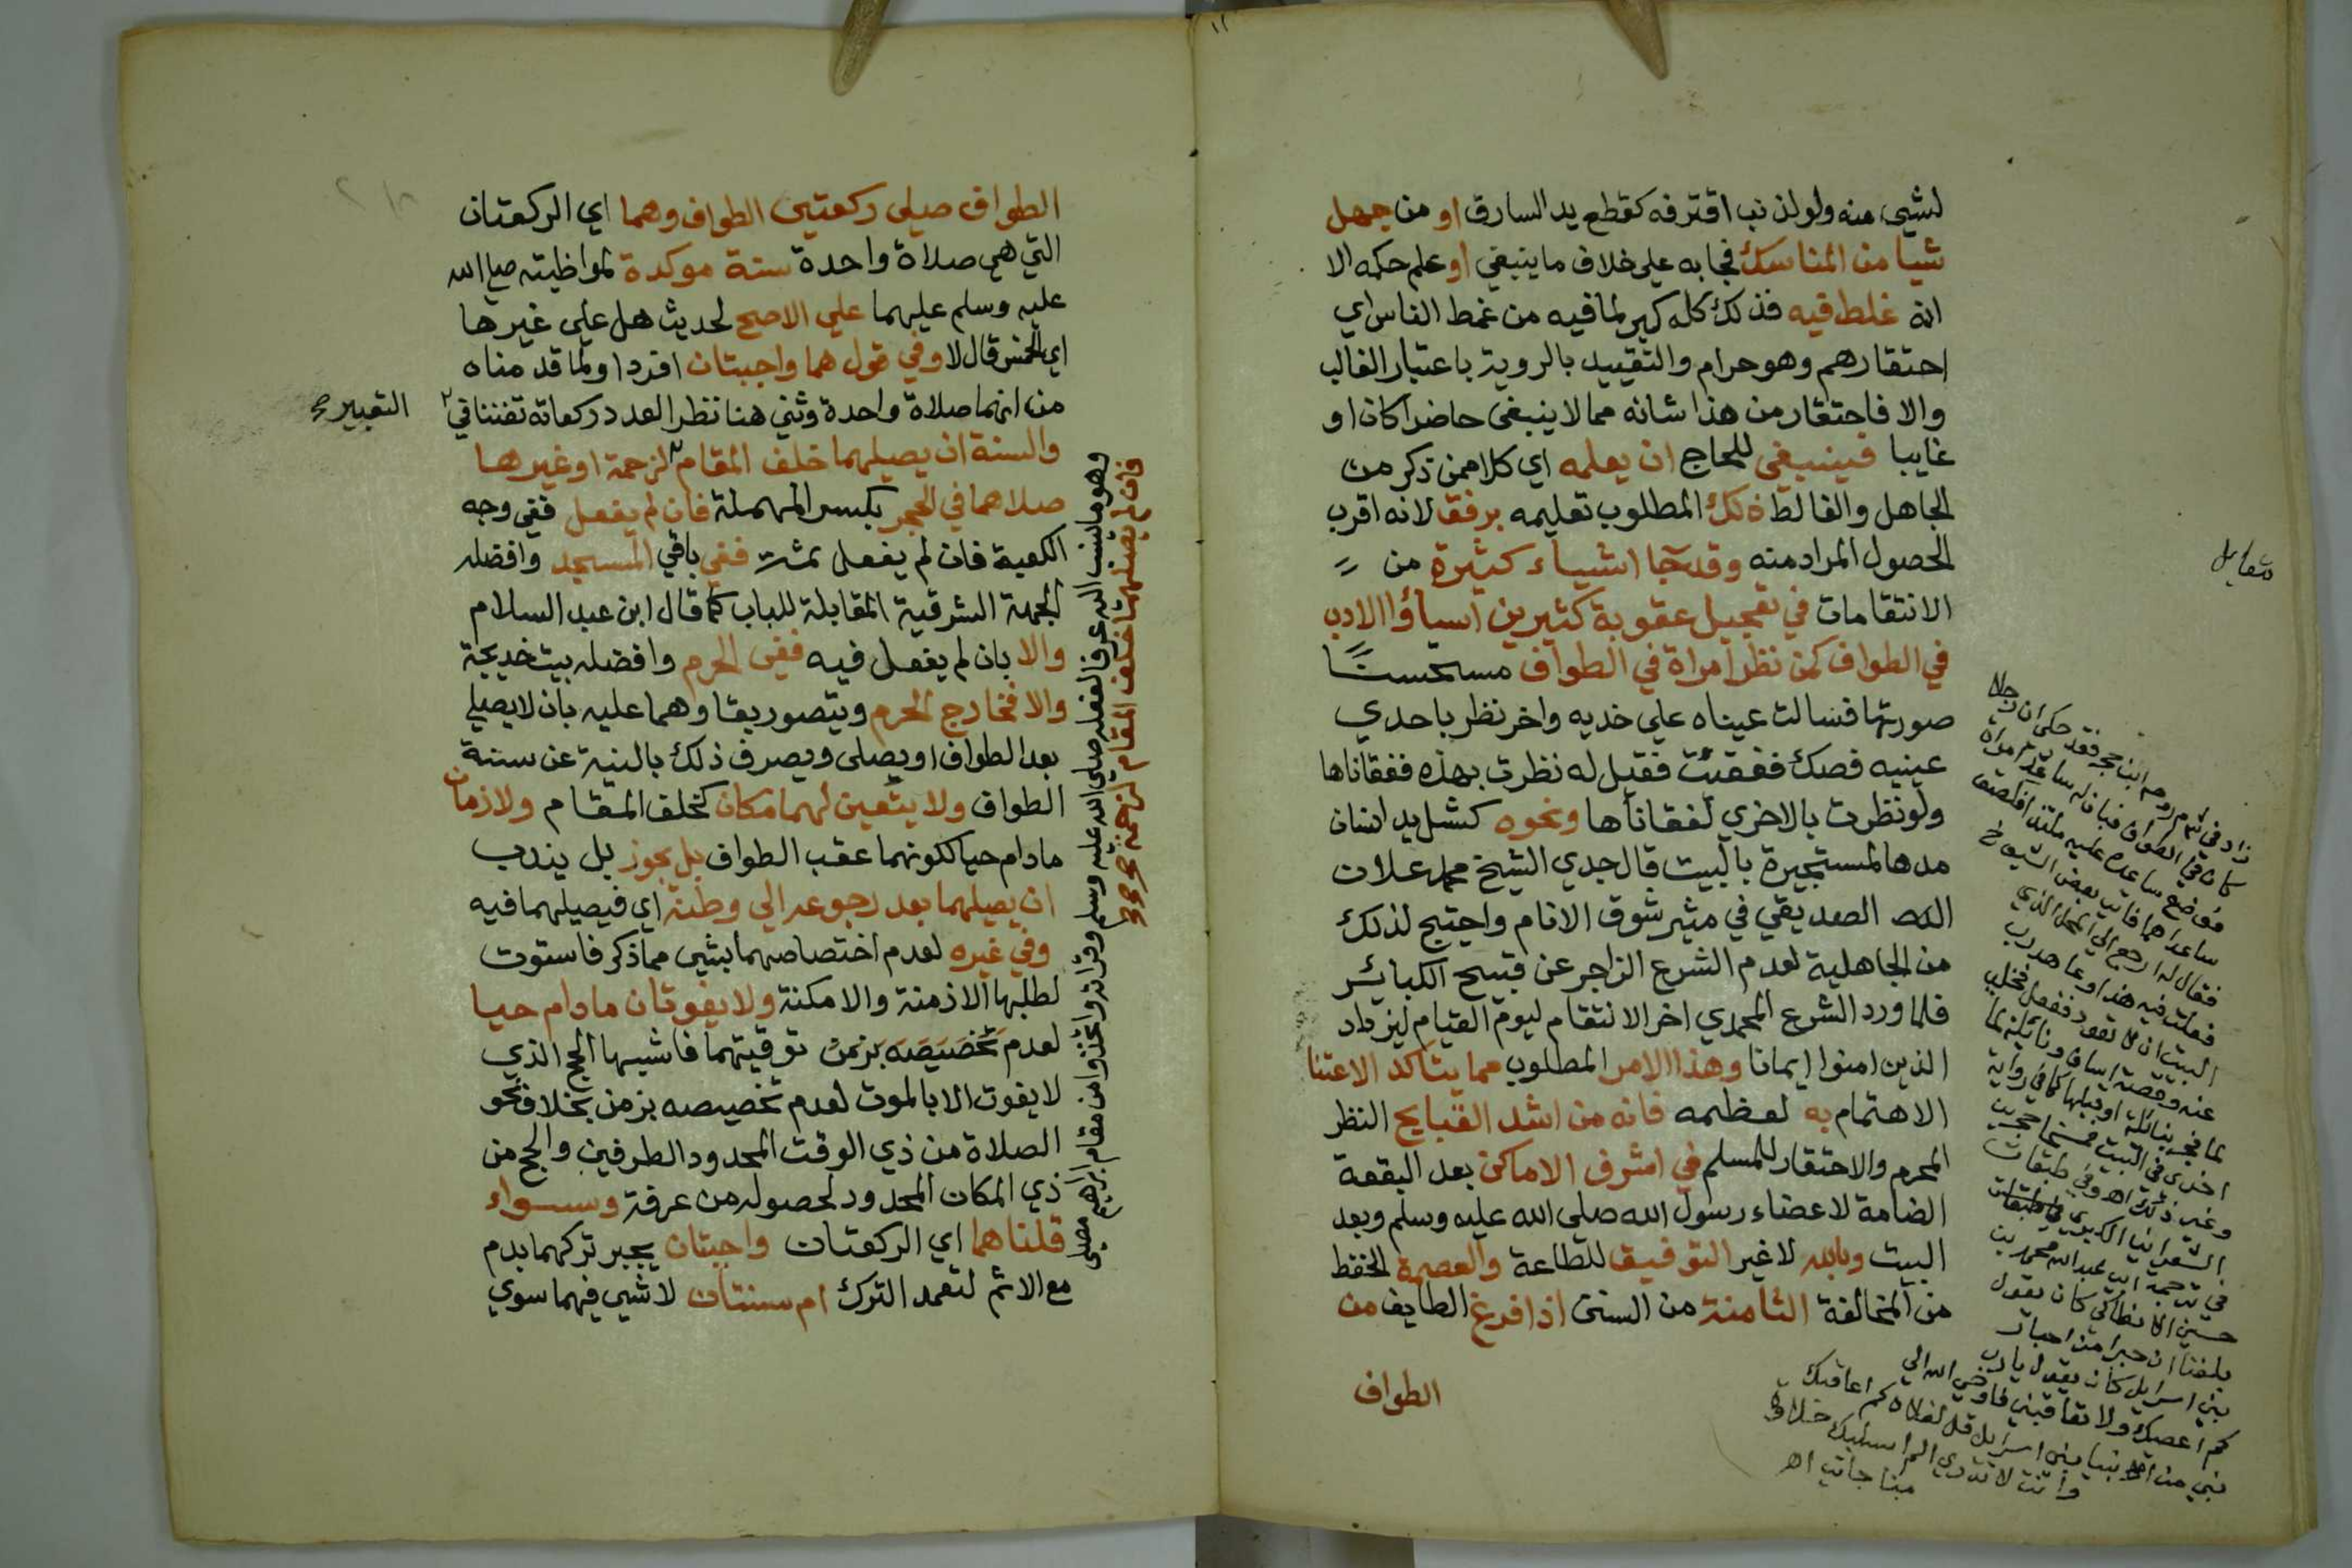 لشيء منه ولو لذنب اقترفه كقطع يد السارق او من جهل
شيا من المناسك فجا به على خلاف ما ينبغي او علم حكمه الا
انه غلط فيه فذلك كله كبر لما فيه من غمط الناس اي
احتقارهم وهو حرام والتقييد بالروية باعتبار الغالب
والا فاحتقار من هذا شانه مما لا ينبغي حاضرا كان او
غايبا فينبغي للحاج ان يعلمه اي كلا ممن ذكر من
الجاهل والغالط ذلك المطلوب تعليمه برفق لانه اقرب
لحصول المراد منه وقد جا اشياء كثيرة من
الانتقامات في تعجيل عقوبة كثيرين اسياؤا الادب
في الطواف كمن نظر امراة في الطواف مستحسنًا
صورتها فسالت عيناه علي خديه واخر نظر باحدي
عينيه فصك ففقئت فقيل له نظرت بهذه ففقاناها
ولو نظرت بالاخري لفقاناها ونحوه كشل يد انسان
مدها لمستجيرة بالبيت قال جدي الشيخ محمد علان
الصديقي في مثير شوق الانام واحتيج لذلك
من الجاهلية لعدم الشرع الزاجر عن قبيح الكبائر
فلما ورد الشرع المحمدي اخر الانتقام ليوم القيام ليزداد
الذين امنوا ايمانا وهذا الامر المطلوب مما يتاكد الاعتنا
الاهتمام به لعظمه فانه من اشد القبايح النظر
المحرم والاحتقار للمسلم في اشرف الاماكن بعد البقعة
الضامة لاعضاء رسول الله صلى الله عليه وسلم وبعد
البيت وبالله لا غير التوفيق للطاعة والعصمة الحفظ
من المخالفة الثامنة من السنن اذا فرغ الطايف من
الطواف
مقابل
كان في الطواف
فقال له ارجع الي المحل الذي
فعلت فيه هذا وعاهد رب
البيت ان لا تعود ففعل فخلي
عنه وقصة اساف ونائلة لما
في ترجمة ابي عبد الله محمد بن
حسين الانطاكي كان يقول
بلغنا ان حبرا من احبار
بني اسرايل كان يقول يا رب
كم اعصيك ولا تعاقبني فاوحي الله الي
نبي من انبيا بني اسرايل قل لفلان كم اعاقبك
وانت لا تدري الم اسلبك حلاوة
مناجاتي اه
الطواف صلى ركعتين الطواف وهما اي الركعتان
التي هي صلاة واحدة سنة موكدة لمواظبته صلي الله
عليه وسلم عليهما علي الاصح لحديث هل علي غيرها
اي الخمس قال لا وفي قول هما واجبتان افردا ولما قدمناه
من انهما صلاة واحدة وثني هنا نظر العدد ركعاته تفننا في
التعبير صح
والسنة ان يصليهما خلف المقام لزحمة او غيرها
صلاهما في الحجر بكسر المهملة فان لم يفعل ففي وجه
الكعبة فان لم يفعل ثمت ففي باقي المسجد وافضله
الجهة الشرقية المقابلة للباب كما قال ابن عبد السلام
والا بان لم يفعل فيه ففي الحرم وافضله بيت خديجة
والا فخارج الحرم ويتصور بقاوهما عليه بان لا يصلي
بعد الطواف او يصلى ويصرف ذلك بالنية عن سنة
الطواف ولا يتعين لهما مكان كخلف المقام ولا زمان
مادام حيا ككونهما عقب الطواف بل يجوز بل يندب
ان يصليهما بعد رجوعه الي وطنه اي فيصليهما فيه
وفي غيره لعدم اختصاصهما بشي مما ذكر فاستوت
لطلبها الازمنة والامكنة ولا يفوتان مادام حيا
لعدم تخصيصه بزمن توقيتهما فاشبها الحج الذي
لا يفوت الا بالموت لعدم تخصيصه بزمن بخلاف نحو
الصلاة من ذي الوقت المحدود الطرفين والحج من
ذي المكان المحدود لحصوله من عرفة وسواء
قلنا هما اي الركعتان واجبتان يجبر تركهما بدم
مع الاثم لتعمد الترك ام سنتان لا شي فيهما سوي
وهو ما ينسب اليه عرفا لفعله صلى الله عليه وسلم وقراته واتخذوا من مقام ابراهيم مصلى
فان لم يصليهما خلف المقام لزحمة صح صح صح